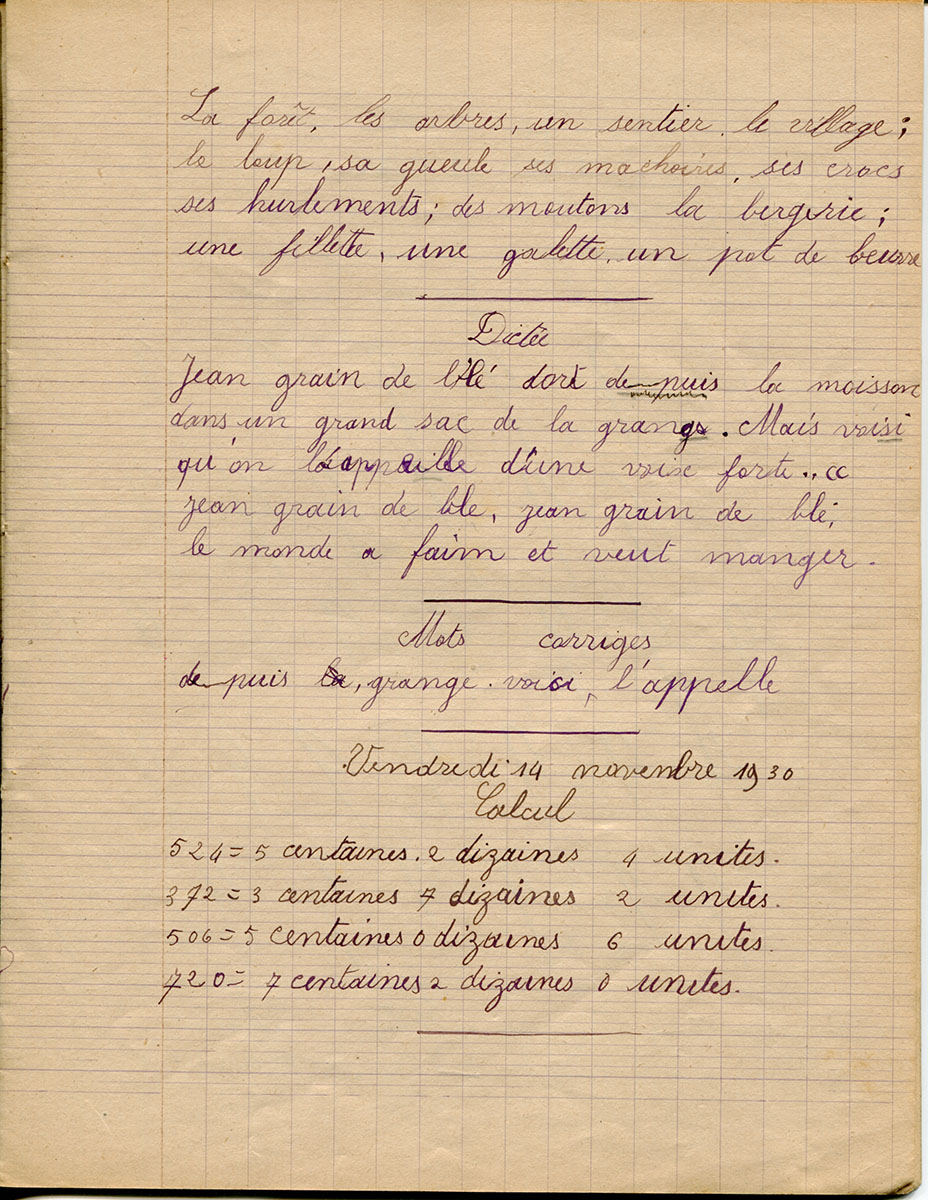 La forêt, les arbres, un sentier, le village;
le loup, sa gueule ses machoires, ses crocs
ses hurlements; des moutons la bergerie;
une fillette, une galette, un pot de beurre
Dictée
Jean grain de blé dort de puis la moisson
dans un grand sac de la grange. Mais voisi
qu'on l'appaille d'une voix forte.. «
Jean grain de ble, Jean grain de blé,
le monde a faim et veut manger.
Mots corriges
de puis la, grange. voici, l'appelle
Vendredi 14 novenbre 1930
Calcul
524 = 5 centaines. 2 dizaines 4 unites.
372 = 3 centaines 7 dizaines 2 unites.
506 = 5 centaines 0 dizaines 6 unites.
720 = 7 centaines 2 dizaines 0 unites.